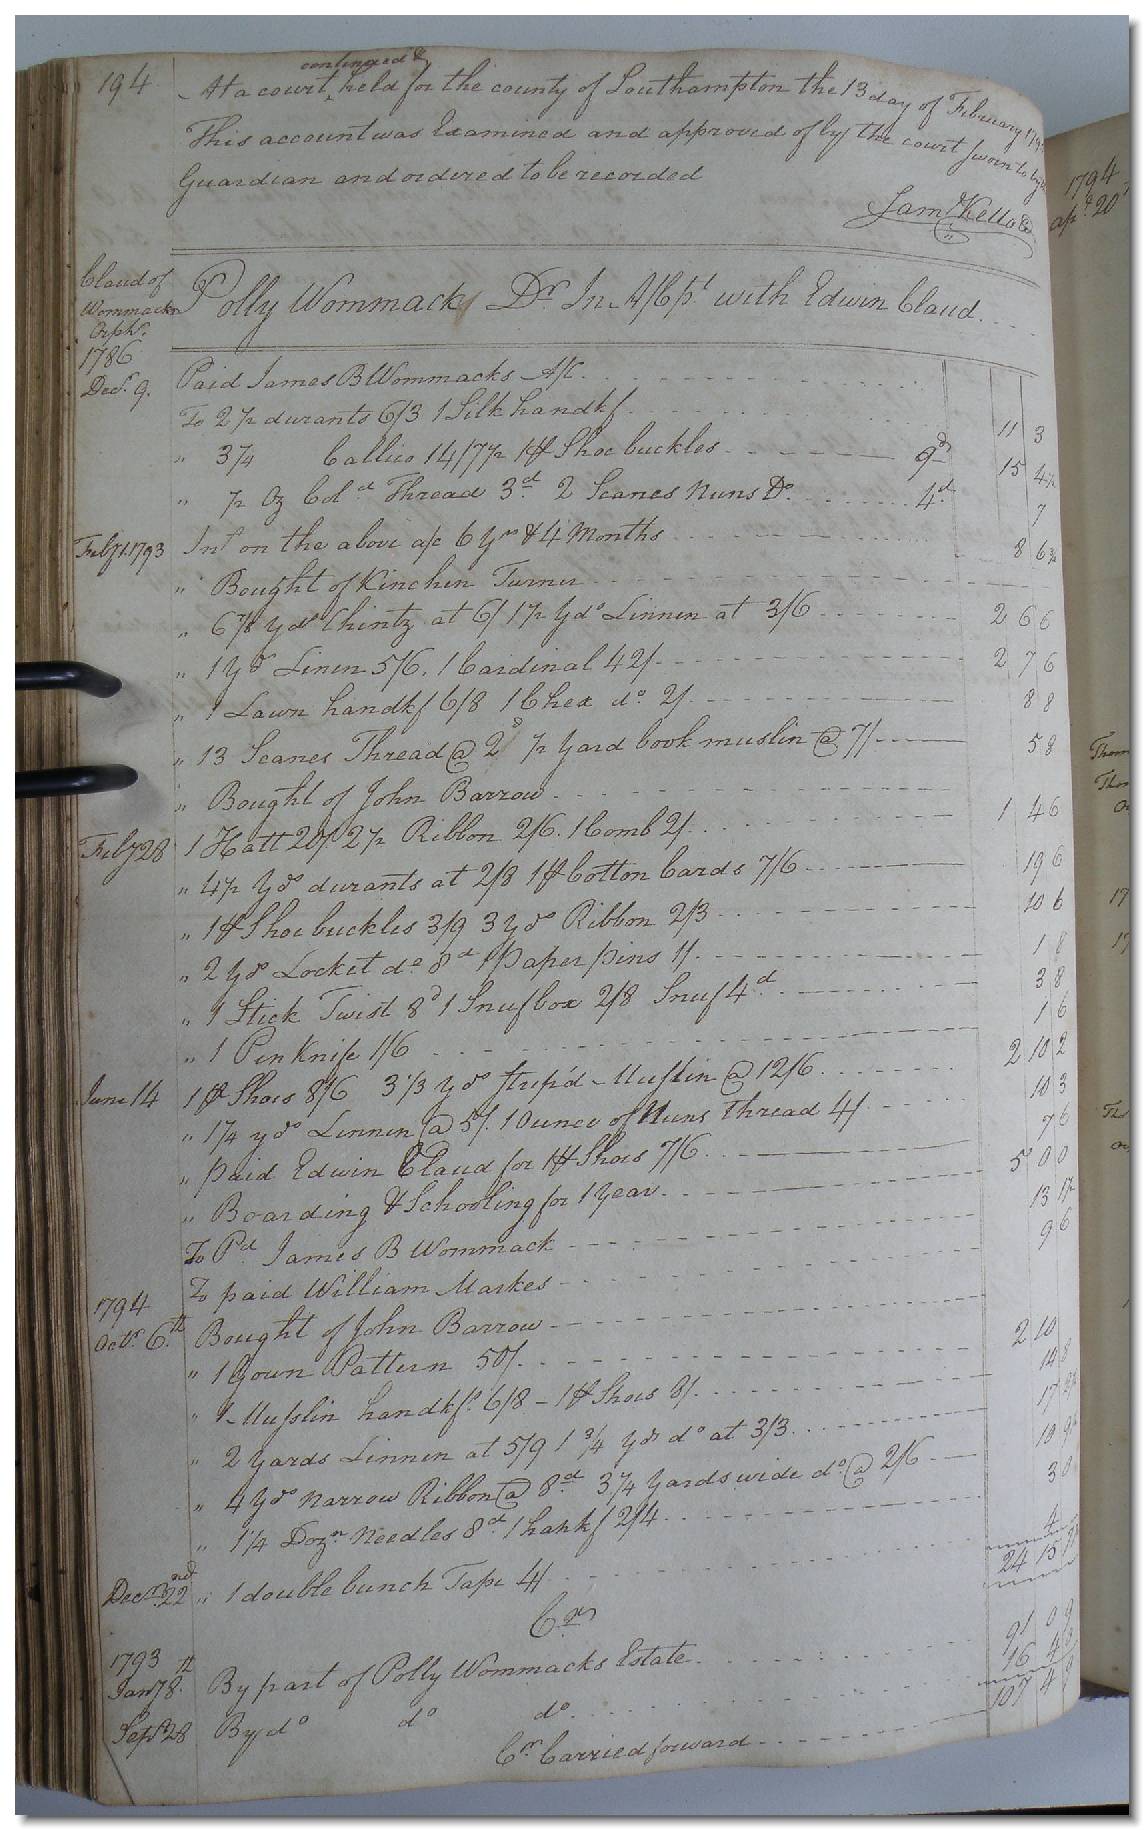 194
continued &
At a court held for the county of Southampton the 13 day of February
This account was Examined and approved of by the court sworn to by
Guardian and ordered to be recorded
Saml Kello
Claud of
Wommacks
Orphs.
Polly Wommack Dr In A/C pt with Edwin Claud
1786
Decr. 9. Paid James B Wommacks A/C
To 2 ½ durants 6/3 1 Silk handkf 11 3
" 3 ¼ Callico 14/7 ½ 1 pr Shoe buckles 9d 15 4 ½
" ½ Oz Cold Thread 3d 2 Scanes Nuns Do 4d 7
Feby 1. 1793 Int on the above a/c 6 yrs & 4 Months 8 6 ¾
" Bought of Kinchen Turner
" 6 7/8 yds Chintz at 6/ 1 ½ yds Linnen at 3/6 2 6 6
" 1 yd Linen 5/6. 1 Cardinal 42/ 2 7 6
" 1 Lawn handkf 6/8 1 Chex do 2/ 8 8
" 13 Scanes Thread @ 2d ½ yard book muslin @ 7/ 5 8
" Bought of John Barrow
Feby 28 1 Hatt 20/ 2 ½ Ribbon 2/6. 1 Comb 2/ 1 4 6
" 4 ½ yds durants at 2/8 1 pr Cotton Cards 7/6 19 6
" 1 pr Shoe buckles 3/9 3 yds Ribbon 2/3 10 6
" 2 yds Locket do 8d 1 paper pins 1/ 1 8
" 1 Stick Twist 8d 1 Snuf box 2/8 Snuf 4d 3 8
" 1 Pen Knife 1/6 1 6
June 14 1 pr Shoes 8/6 3 1/3 yds strip'd Muslin @ 12/6 2 10 2
" 1 ¼ yds Linnen @ 5/. 1 Ounce of Nuns Thread 4/ 10 3
" paid Edwin Claud for 1 pr Shoes 7/6 7 6
" Boarding & Schooling for 1 year 5 0 0
To Pd James B Wommack 13 1 ½
To paid William Markes 9 6
1794
Octr. 6th Bought of John Barrow
" 1 Gown Pattern 50/ 2 10
" 1 Muslin handkf. 6/8 - 1 pr Shoes 8/ 14 8
" 2 yards Linnen at 5/9 1 ¾ yds do at 3/3 17
" 4 yds narrow Ribbon @ 8d 3 ¼ yards wide do @ 2/6 10
" 1 ¼ Dozn Needles 8d 1 hankf 2/4 3 0
Decr. 22nd " 1 double bunch Tape 4/ 4
24 15
Cr
1793
Jany 8th By part of Polly Wommacks Estate 91 0 9
Sept 28 By do do do 16 4
107 4 9
Cr Carried forward
1794
apl 20